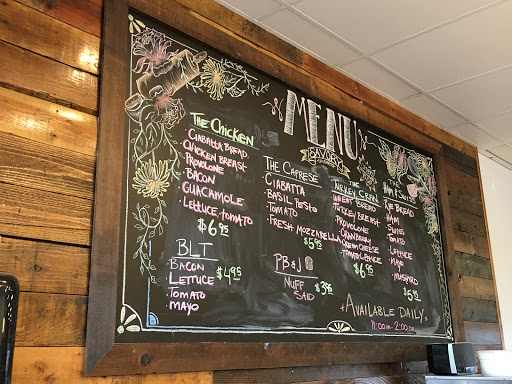 MENU
SAVORY
THE CHICKEN
CIABATTA BREAD
CHICKEN BREAST
PROVOLONE
BACON
GUACAMOLE
LETTUCE, TOMATO
$6.95
BLT
BACON
LETTUCE
TOMATO
MAYO
$4.95
THE CAPRESE
CIABATTA
BASIL PESTO
TOMATO
FRESH MOZZARELLA
$5.95
PB&J
NUFF
SAID
$3.95
THE
TURKEY CRAN
WHEAT BREAD
TURKEY BREAST
PROVOLONE
CRANBERRY
CREAM CHEESE
TOMATO, LETTUCE
$6.95
HAM & SWISS
RYE BREAD
HAM
SWISS
TOMATO
LETTUCE
MAYO
MUSTARD
AVAILABLE DAILY
11:00AM-2:00PM